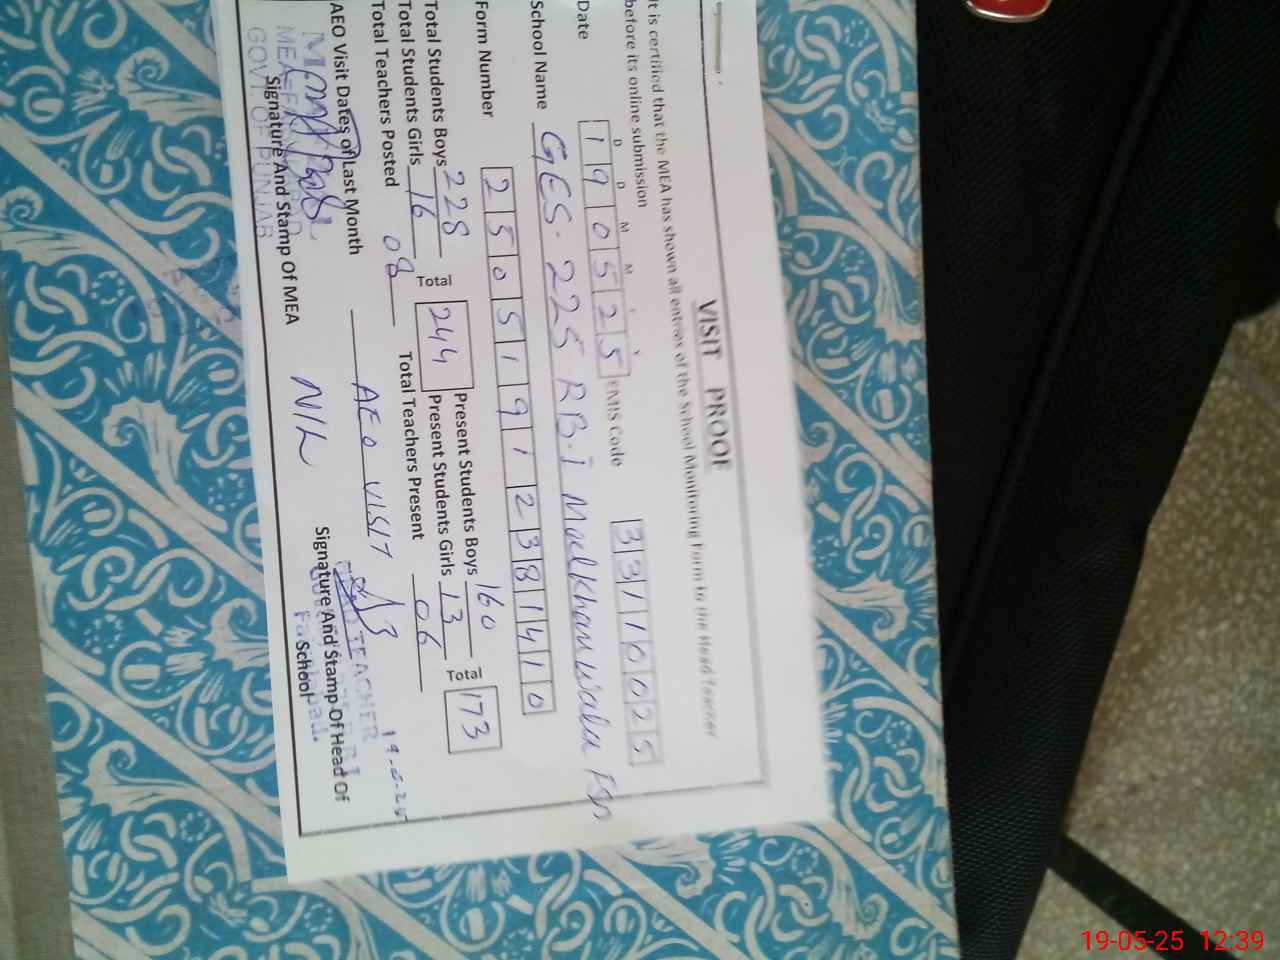 VISIT PROOF
It is certified that the MEA has shown all entries of the School Monitoring Form to the Head Teacher
before its online submission
D D M M Y Y
Date 190525 EMIS Code 33110025
School Name GES. 225 RB.i Malkhanwala Fsd
Form Number 25051912381410
Total Students Boys 228 Total 244 Present Students Boys 160 Total 173
Total Students Girls 16 Present Students Girls 13
Total Teachers Posted 08 Total Teachers Present 06
AEO Visit Dates of Last Month AEO VISIT
NIL
19-5-25
HEAD TEACHER
Signature And Stamp Of MEA
GOVT. OF PUNJAB
Signature And Stamp Of Head Of
School
19-05-25 12:39